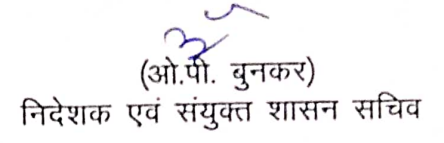 (ओ.पी. बुनकर)
निदेशक एवं संयुक्त शासन सचिव